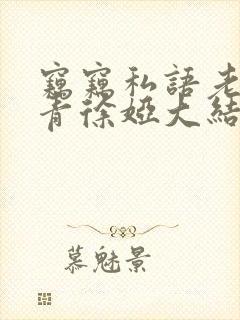 竊竊私語老
青徐婭大結
慕魅景